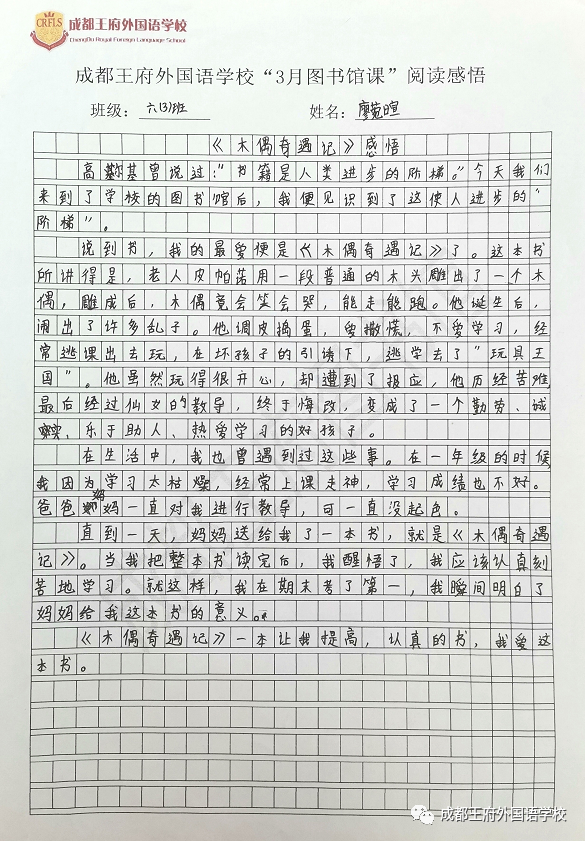 CRFLS
成都王府外国语学校
ChengDu Royal Foreign Language School
成都王府外国语学校“3月图书馆课”阅读感悟
班级：六(3)班 姓名：廖苑暄
《木偶奇遇记》感悟
高尔基曾说过：“书籍是人类进步的阶梯。”今天我们
来到了学校的图书馆后，我便见识到了这使人进步的“
阶梯”。
说到书，我的最爱便是《木偶奇遇记》了。这本书
所讲得是，老人皮帕诺用一段普通的木头雕出了一个木
偶，雕成后，木偶竟会笑会哭，能走能跑。他诞生后，
闹出了许多乱子。他调皮捣蛋，爱撒慌，不爱学习，经
常逃课出去玩，在坏孩子的引诱下，逃学去了“玩具王
国”。他虽然玩得很开心，却遭到了报应，他历经苦难，
最后经过仙女的教导，终于悔改，变成了一个勤劳、诚
实、乐于助人、热爱学习的好孩子。
在生活中，我也曾遇到过这些事。在一年级的时候，
我因为学习太枯燥，经常上课走神，学习成绩也不好。
爸爸妈妈一直对我进行教导，可一直没起色。
直到一天，妈妈送给我了一本书，就是《木偶奇遇
记》。当我把整本书读完后，我醒悟了，我应该认真刻
苦地学习。就这样，我在期末考了第一，我瞬间明白了
妈妈给我这本书的意义。
《木偶奇遇记》一本让我提高，认真的书，我爱这
本书。
成都王府外国语学校